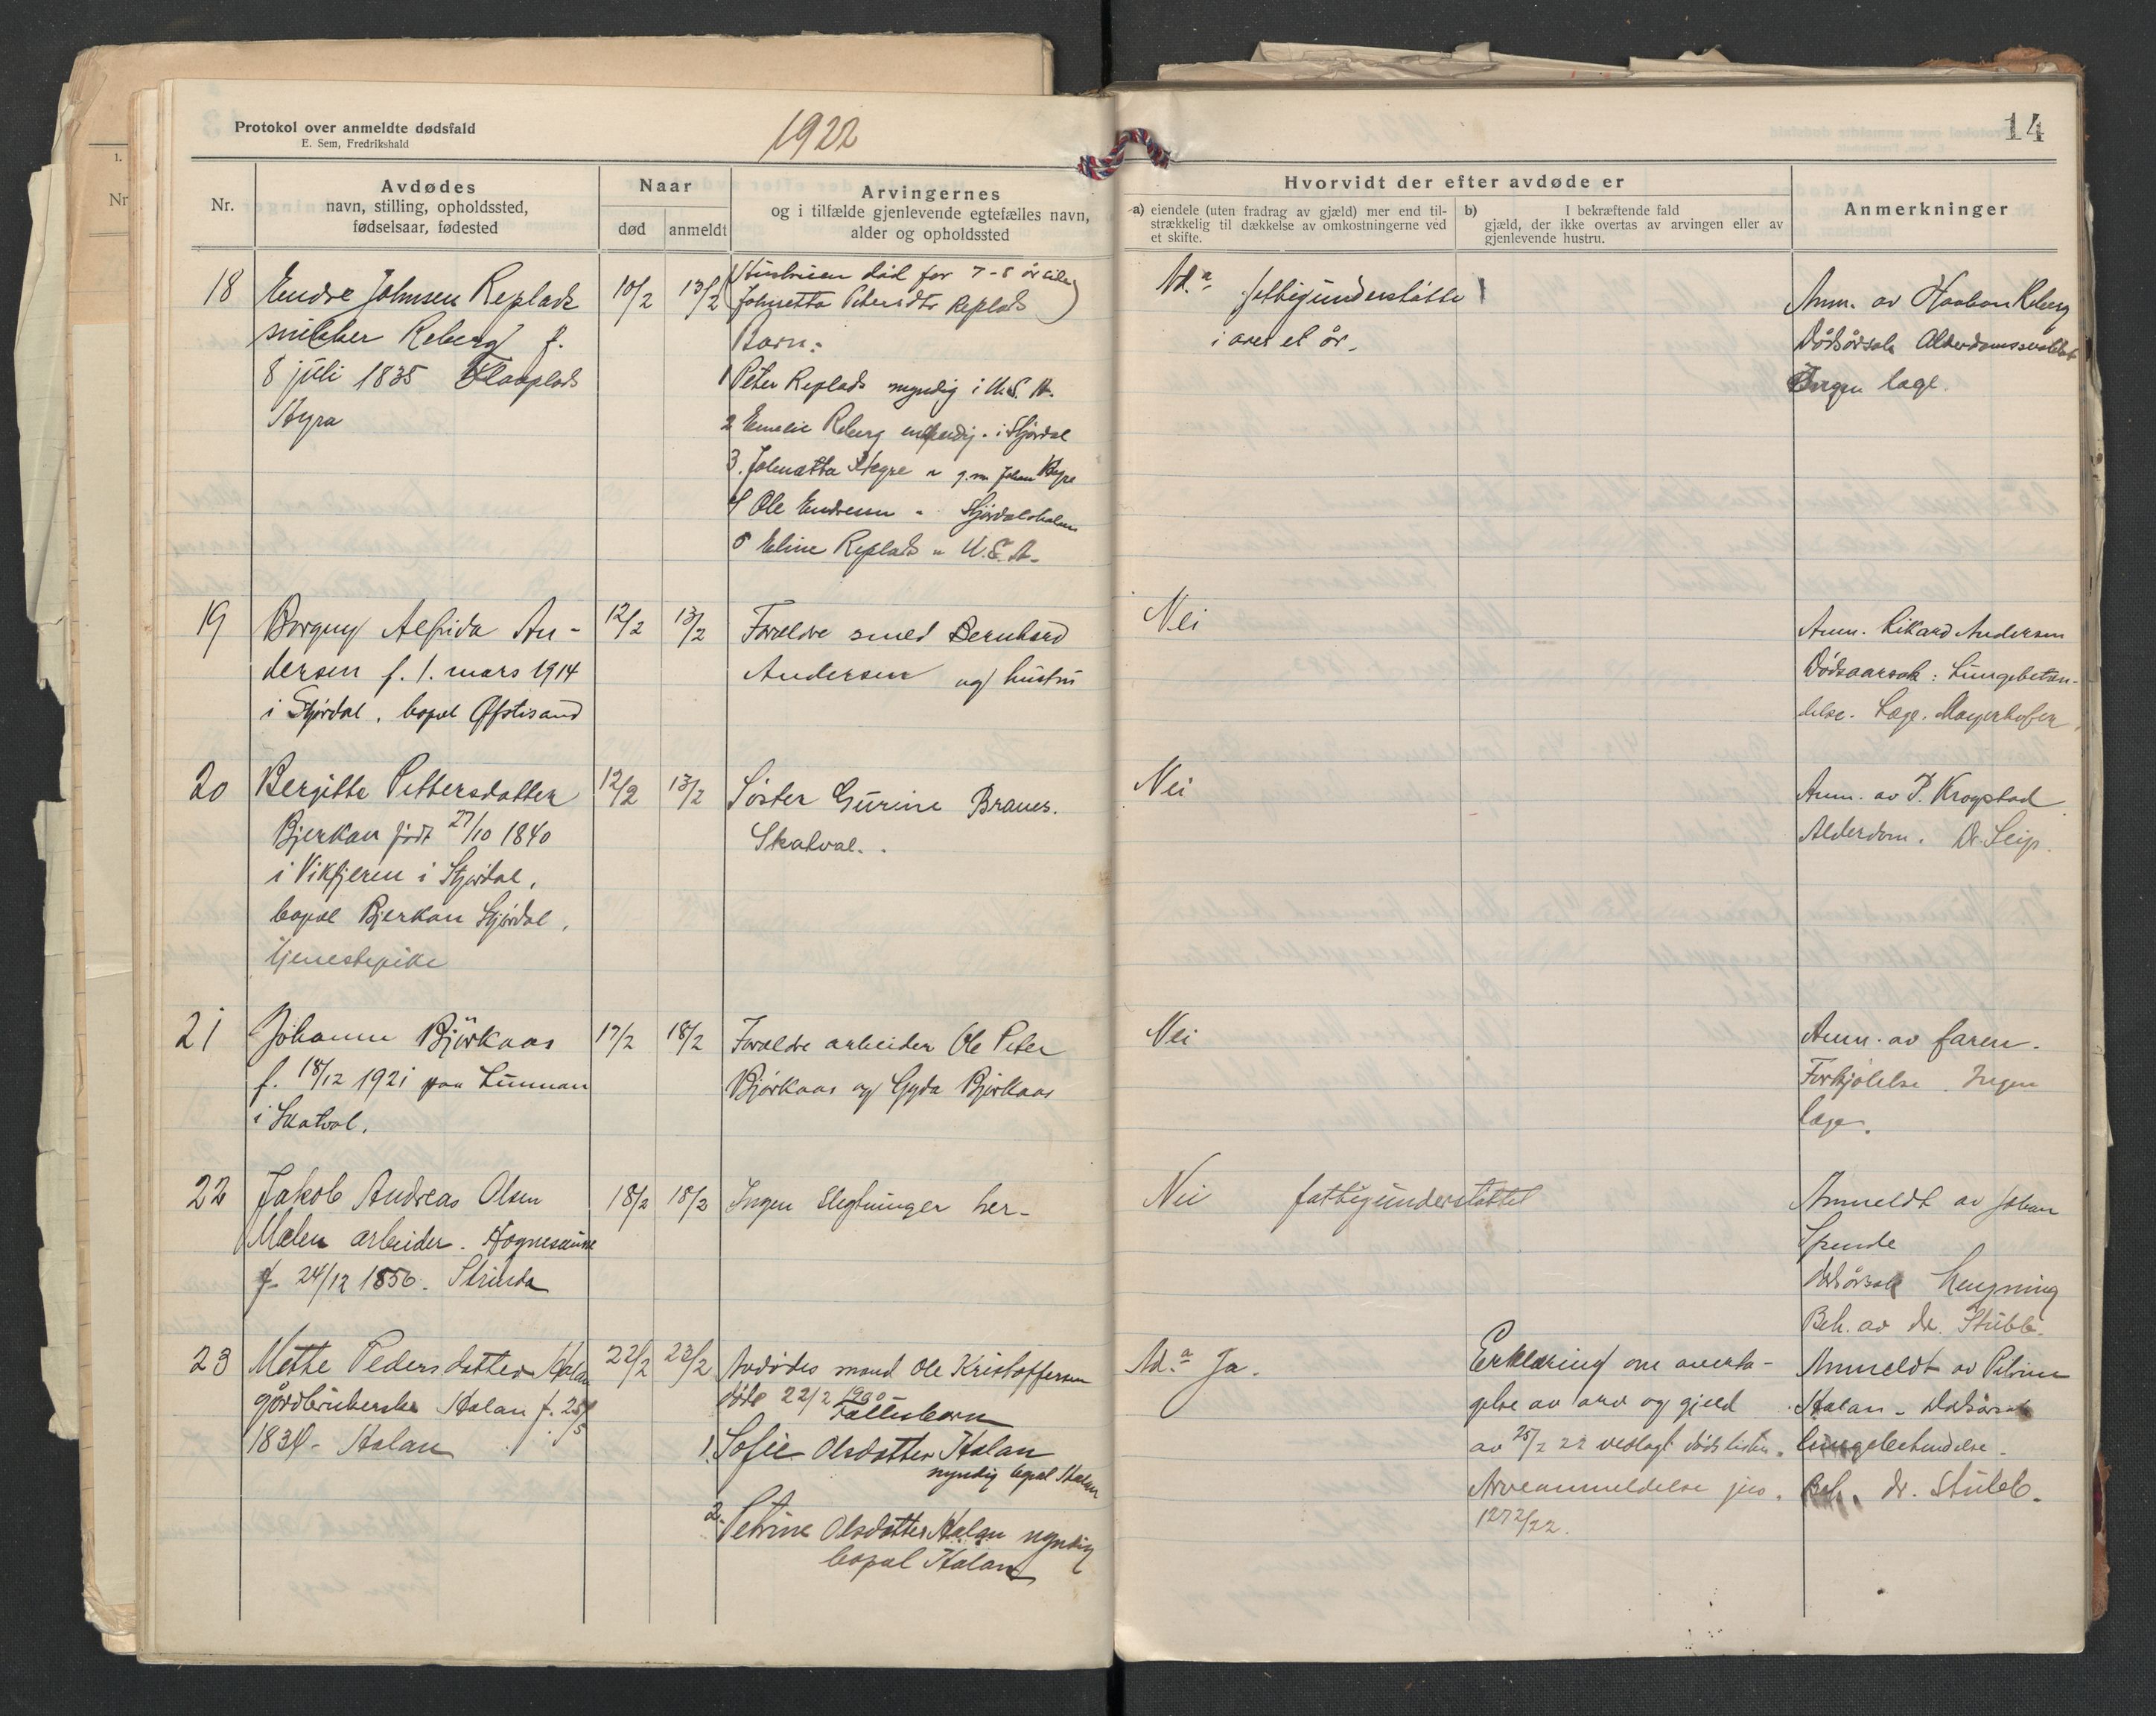 Protokol over anmeldte dødsfald
E. Sem, Fredrikshald
1922
14
Nr.
Avdødes
navn, stilling, opholdssted,
fødselsaar, fødested
Naar
død
anmeldt
Arvingernes
og i tilfælde gjenlevende egtefælles navn,
alder og opholdssted
Hvorvidt der efter avdøde er
a) eiendele (uten fradrag av gjæld) mer end til-
strækkelig til dækkelse av omkostningerne ved
et skifte.
b) I bekræftende fald
gjæld, der ikke overtas av arvingen eller av
gjenlevende hustru.
Anmerkninger
18
Endre Johnsen Replads
snekker Reberg f.
8 juli 1835
Hegra
10/2
13/2
Hustruen död for 7-8 år siden
Johnetta Petersdtr Replads
Barn:
1 Peter Replads myndig i U.S.A.
2 Emelie Reberg myndig i Stjördal
3. Johnetta Hegre " g.m. Johan Hegre
4 Ole Endresen " Stjördalshalsen
5 Eline Replads " U.S.A.
Ad. a, fattigunderstötte
i over et år.
Anm. av Haakon Reberg
Dödsårsak Alderdomssvakhet
Ingen læge.
19
Borguny Alfrida An-
dersen f. 1. mars 1914
i Stjördal, bopæl Öfstisand
12/2
13/2
Forældre smed Bernhard
Andersen og hustru
Nei
Anm. Rikard Andersen
Dödsaarsak: Lungebetæn-
delse. Læge. Mayerhofer
20
Bergitte Pettersdatter
Bjerkan født 27/10 1840
i Vikfjeren i Stjördal,
bopæl Bjerkan Stjördal,
tjenestepike
12/2
13/2
Söster Gurine Branes.
Skatval.
Nei
Anm. av P. Krogstad
Alderdom. Dr. Seip.
21
Johanne Björkaas
f. 18/12 1921 paa Lunnan
i Skatval.
17/2
18/2
Forældre arbeider Ole Peter
Björkaas og Gyda Björkaas
Nei
Anm. av faren.
Forkjölelse. Ingen
læge.
22
Jakob Andreas Olsen
Mælen arbeider.
f. 24/12 1856. Strinda
18/2
18/2
Ingen slegtninger her-
Nei fattigunderstöttet
Anmeldt av Johan
Spende
Dödsårsak hengning
Beh. av dr. Stubb.
23
Mette Pedersdatter Halan
gårdbrukerske Halan f.
1834 - Halan
22/2
23/2
Avdödes mand Ole Kristoffersen
döde 22/2 1900 -
Fællesbarn
1. Sofie Olsdatter Halan
myndig bopæl Halan
2. Petrine Olsdatter Halan myndig
bopæl Halan
Ad. a Ja.
Erklæring om overta-
gelse av arv og gjeld
av 25/2 22 vedlagt dödslisten.
Arveanmeldelse jno.
1272/22.
Anmeldt av Petrine
Halan - Dödsårsak
lungebetændelse -
Beh. dr. Stubb.